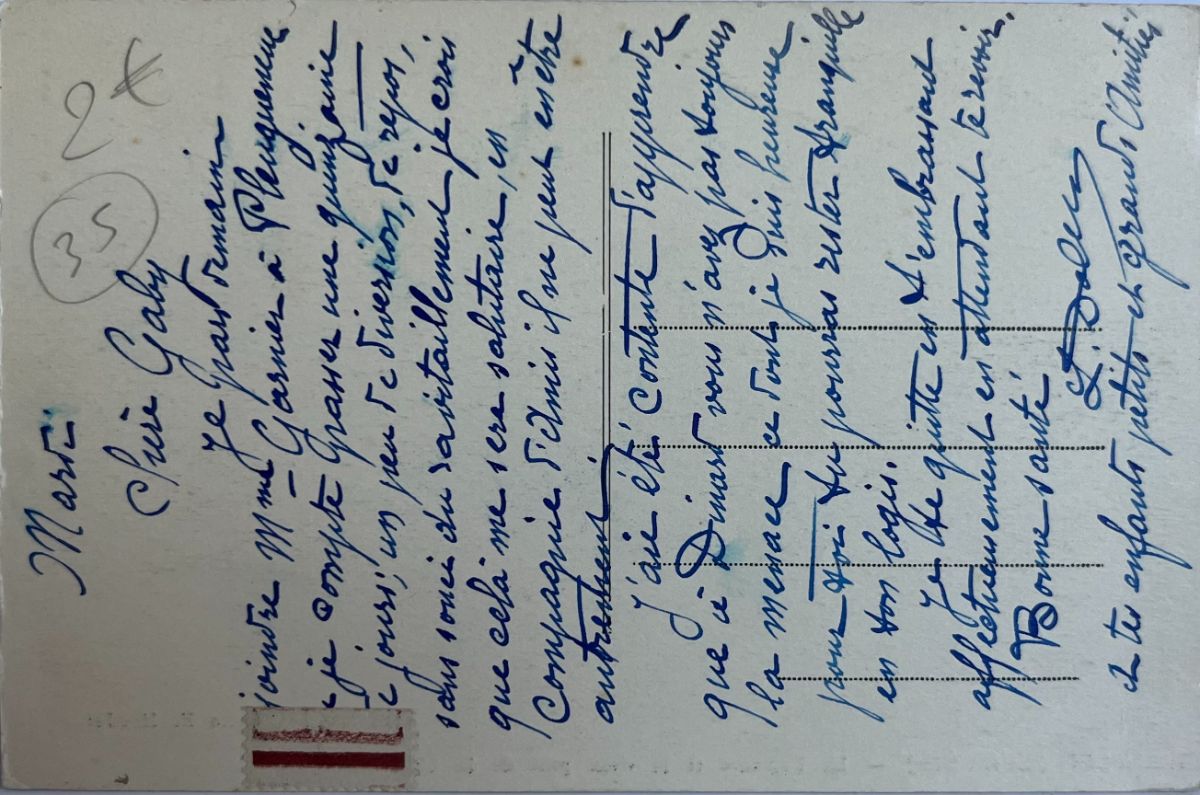 2€
35
Mardi
Chère Gaby
Je pars demain
joindre Mme Garnier à Pleugueneuc
je compte passer une quinzaine
de jours, un peu de diversion, de repos,
sans souci du ravitaillement je crois
que celà me sera salutaire, en
compagnie d'amis il ne peut en être
autrement
J'ai été contente d'apprendre
que à Dinard vous n'avez pas toujours
la menace ce dont je suis heureuse
pour toi tu pourras rester tranquille
en ton logis.
Je te quitte en t'embrassant
affectueusement en attendant te revoir.
Bonne santé
L.
à tes enfants petits et grands d'Amitiés